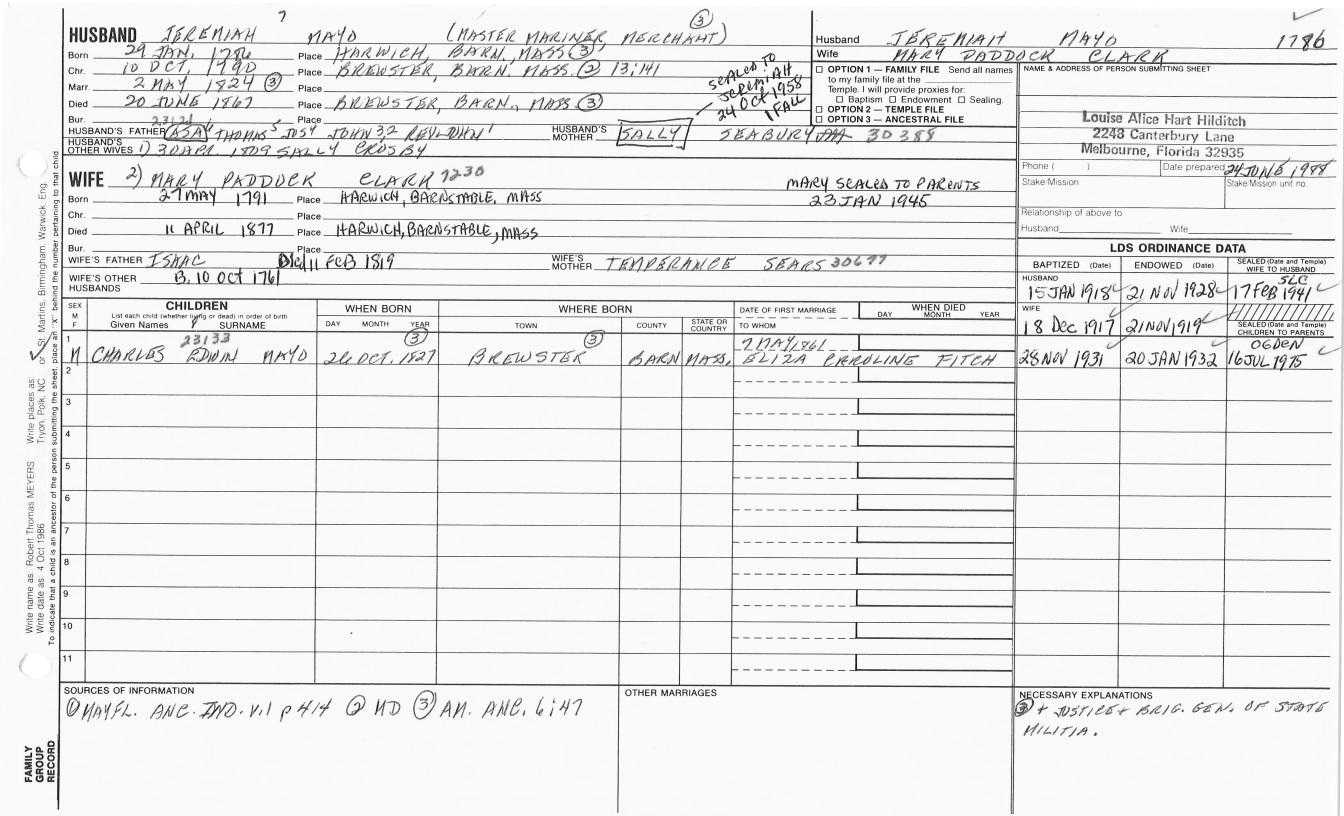 7
HUSBAND JEREMIAH MAYO (MASTER MARINER, MERCHANT) ③
Born 29 JAN, 1786 Place HARWICH, BARN, MASS ③
Chr. 10 OCT, 1790 Place BREWSTER, BARN. MASS. ② 13;141
Marr. 2 MAY 1824 ③ Place
Died 20 JUNE 1867 Place BREWSTER, BARN., MASS ③
Bur. Place
SEALED TO
JEREMIAH
24 OCT 1958
1 FALL
23121
HUSBAND'S FATHER ASA THOMAS5 JOS4 JOHN 3,2 REV. JOHN1 HUSBAND'S MOTHER SALLY SEABURY 30388
HUSBAND'S OTHER WIVES 1) 30 APR. 1809 SALLY CROSBY
WIFE 2) MARY PADDOCK CLARK 7230
MARY SEALED TO PARENTS
23 JAN 1945
Born 27 MAY 1791 Place HARWICH, BARNSTABLE, MASS
Chr. Place
Died 11 APRIL 1877 Place HARWICH, BARNSTABLE, MASS
Bur. Place
WIFE'S FATHER ISAAC Died 11 FEB 1819 WIFE'S MOTHER TEMPERANCE SEARS 30677
WIFE'S OTHER HUSBANDS B. 10 OCT 1761
Husband JEREMIAH MAYO 1786
Wife MARY PADDOCK CLARK
☐ OPTION 1 — FAMILY FILE Send all names
to my family file at the
Temple. I will provide proxies for:
☐ Baptism ☐ Endowment ☐ Sealing.
☐ OPTION 2 — TEMPLE FILE
☐ OPTION 3 — ANCESTRAL FILE
NAME & ADDRESS OF PERSON SUBMITTING SHEET
Louise Alice Hart Hilditch
2248 Canterbury Lane
Melbourne, Florida 32935
Phone ( ) Date prepared 24 JUNE 1988
Stake/Mission Stake/Mission unit no.
Relationship of above to
Husband Wife
LDS ORDINANCE DATA
BAPTIZED (Date) ENDOWED (Date) SEALED (Date and Temple) WIFE TO HUSBAND
HUSBAND SLC
15 JAN 1918 21 NOV 1928 17 FEB 1941
WIFE
18 Dec 1917 21 NOV 1919 SEALED (Date and Temple) CHILDREN TO PARENTS
OGDEN
28 NOV 1931 20 JAN 1932 16 JUL 1975
SEX M F
CHILDREN
List each child (whether living or dead) in order of birth
Given Names SURNAME
WHEN BORN
DAY MONTH YEAR
WHERE BORN
TOWN COUNTY STATE OR COUNTRY
DATE OF FIRST MARRIAGE
TO WHOM
WHEN DIED
DAY MONTH YEAR
1 23133 ③ ③ 7 MAY 1861
M CHARLES EDWIN MAYO 26 OCT. 1827 BREWSTER BARN MASS. ELIZA CAROLINE FITCH
2
3
4
5
6
7
8
9
10
11
SOURCES OF INFORMATION
① MAYFL. ANC. IND. v.1 p 414 ② MD ③ AM. ANC. 6:47
OTHER MARRIAGES
NECESSARY EXPLANATIONS
③ + JUSTICE + BRIG. GEN. OF STATE
MILITIA.
Write name as: Robert Thomas MEYERS Write places as: St. Martins, Birmingham, Warwick, Eng.
Write date as: 4 Oct 1986 Tryon, Polk, NC
To indicate that a child is an ancestor of the person submitting the sheet, place an "X" behind the number pertaining to that child
FAMILY
GROUP
RECORD